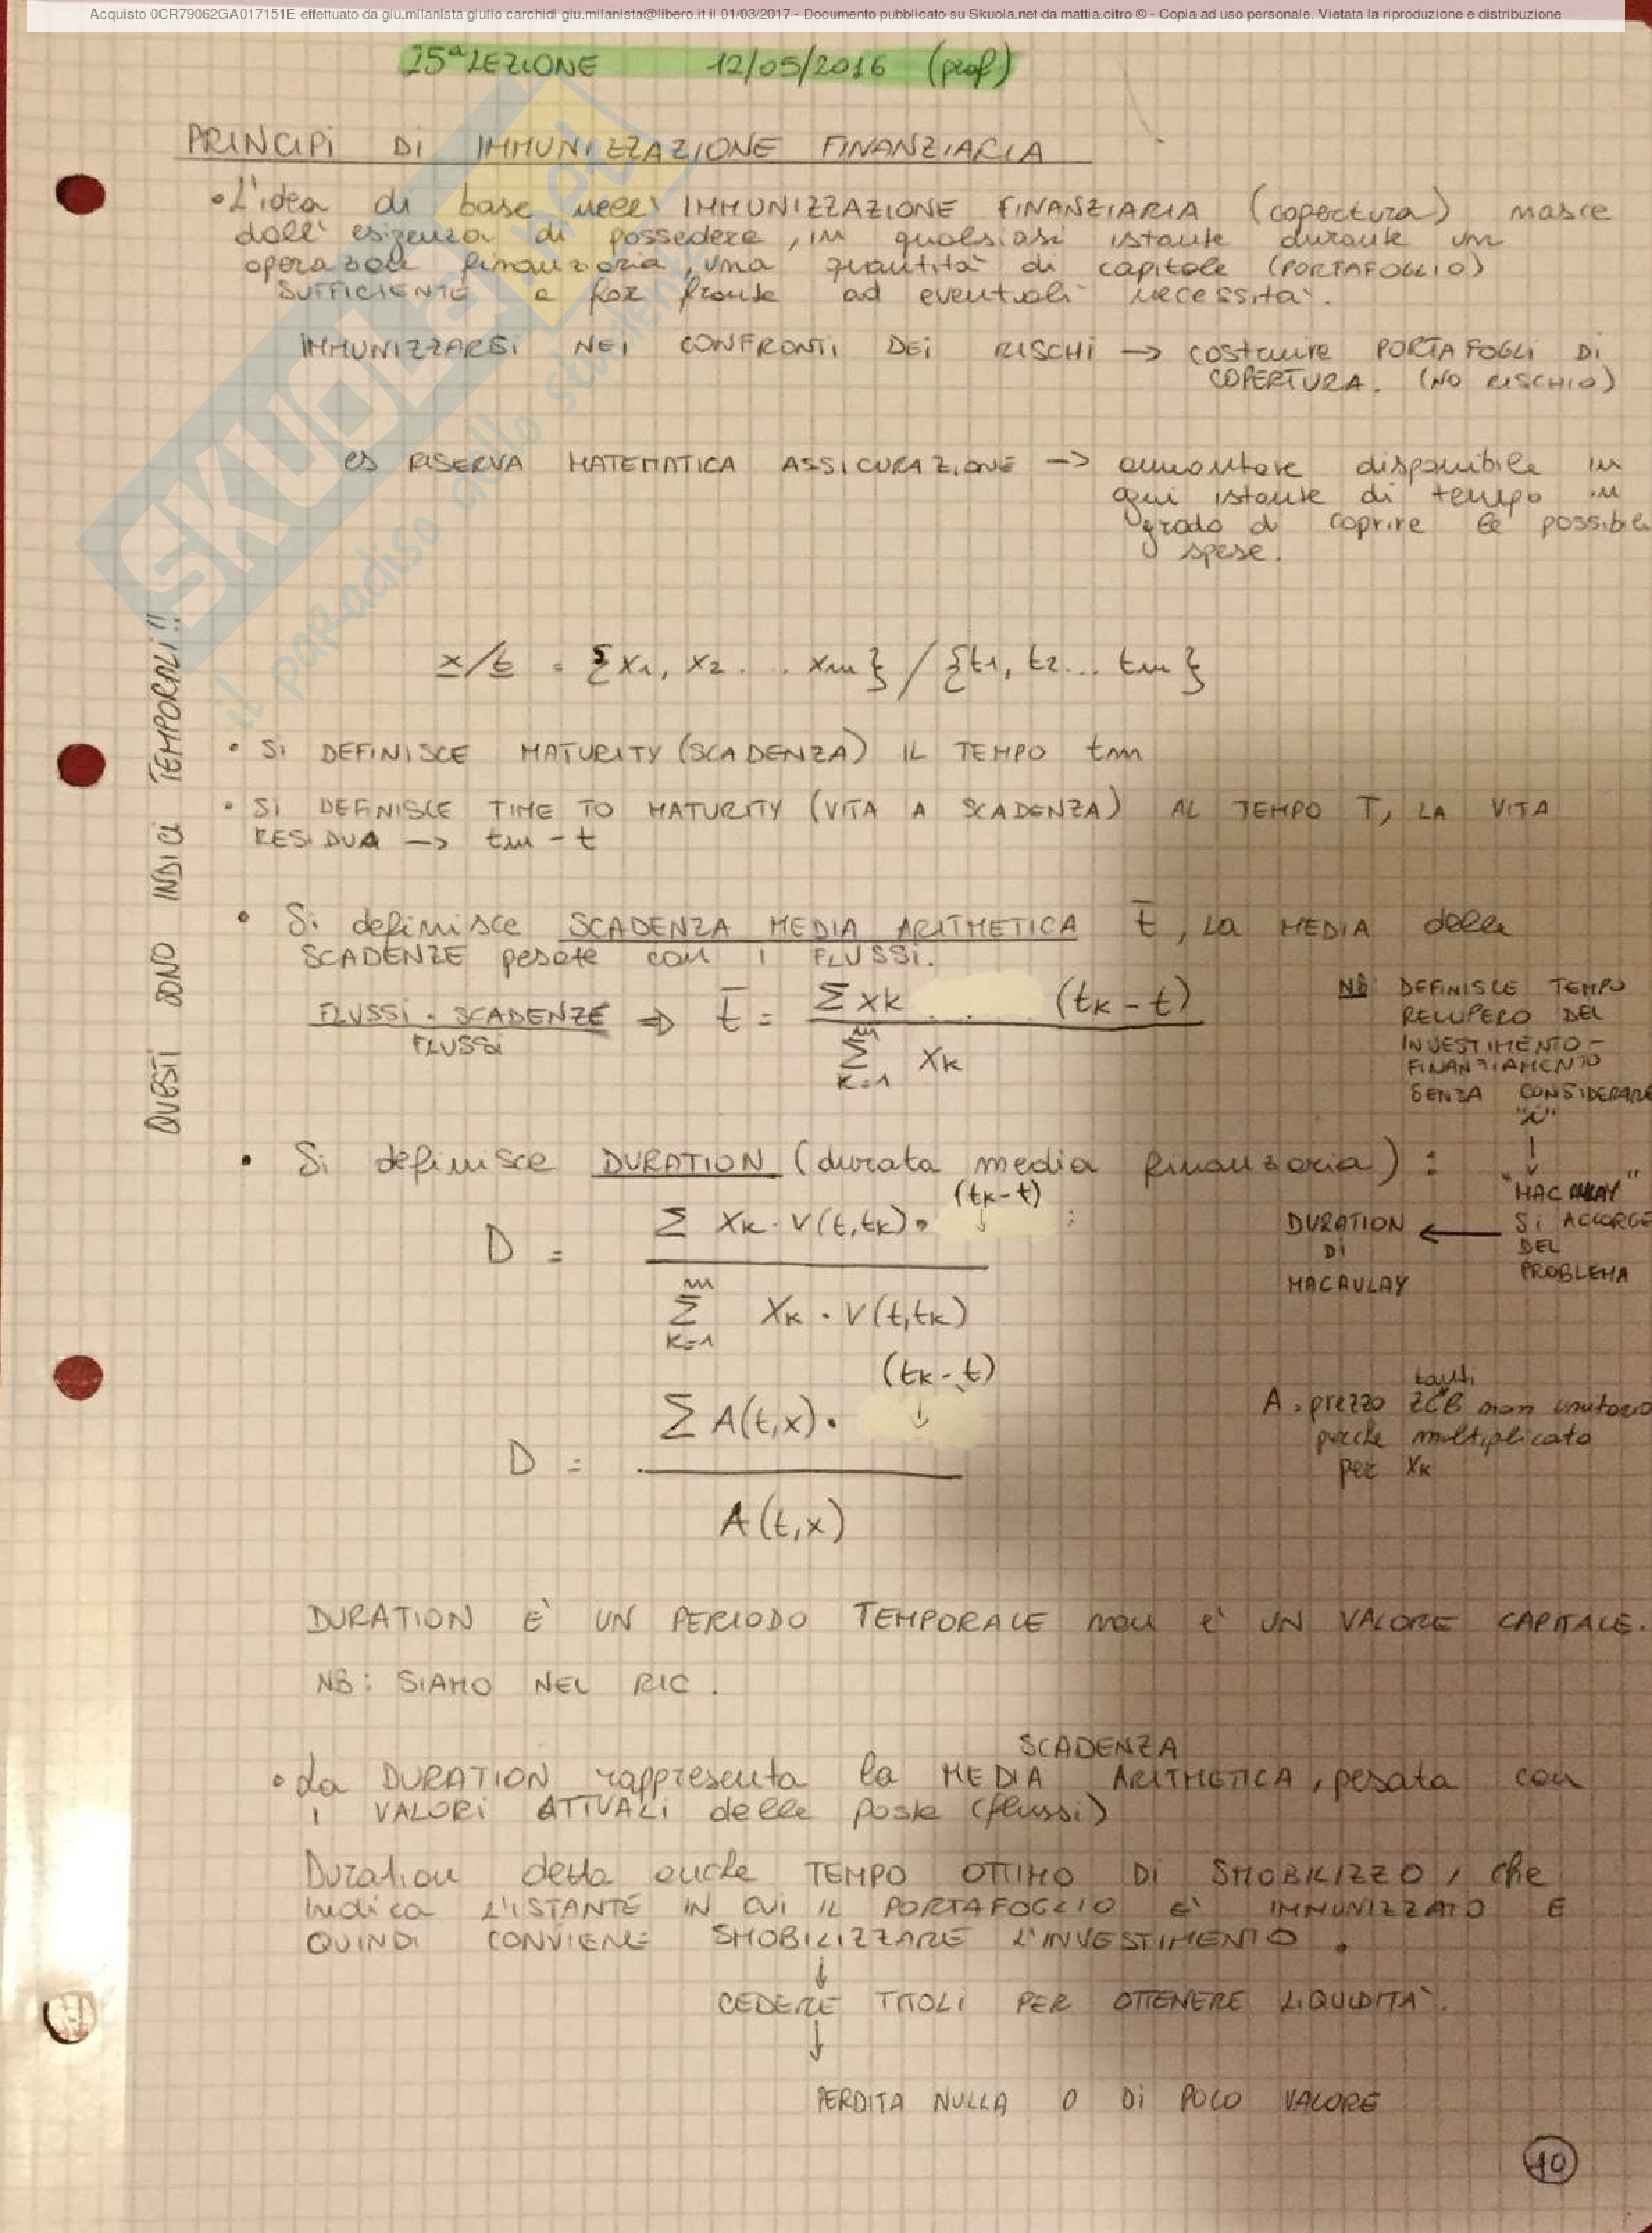 Acquisto 0CR79062GA017151E effettuato da giu.milanista giulio carchidi giu.milanista@libero.it il 01/03/2017 - Documento pubblicato su Skuola.net da mattia.citro © - Copia ad uso personale. Vietata la riproduzione e distribuzione
25ª LEZIONE 12/05/2016 (prof)
PRINCIPI DI IMMUNIZZAZIONE FINANZIARIA
• L'idea di base nell' IMMUNIZZAZIONE FINANZIARIA (copertura) nasce
dall' esigenza di possedere, in qualsiasi istante durante un
operazione finanziaria, una quantità di capitale (PORTAFOGLIO)
SUFFICIENTE a far fronte ad eventuali necessità.
IMMUNIZZARSI NEI CONFRONTI DEI RISCHI → costruire PORTAFOGLI DI
COPERTURA. (NO RISCHIO)
es RISERVA MATEMATICA ASSICURAZIONE → ammontare disponibile in
ogni istante di tempo in
grado di coprire le possibili
spese.
x/t = {x1, x2 ... xm} / {t1, t2 ... tm}
QUESTI SONO INDICI TEMPORALI!!
• SI DEFINISCE MATURITY (SCADENZA) IL TEMPO tm
• SI DEFINISCE TIME TO MATURITY (VITA A SCADENZA) AL TEMPO T, LA VITA
RESIDUA → tm - t
• Si definisce SCADENZA MEDIA ARITMETICA t̄, LA MEDIA delle
SCADENZE pesate con i FLUSSI.
FLUSSI · SCADENZE / FLUSSI ⇒ t̄ = Σ xk (tk - t) / Σ k=1 m xk
NB: DEFINISCE TEMPO
RECUPERO DEL
INVESTIMENTO -
FINANZIAMENTO
SENZA CONSIDERARE
"i"
↓
"MACAULAY"
SI ACCORGE
DEL
PROBLEMA
← DURATION
DI
MACAULAY
• Si definisce DURATION (durata media finanziaria) :
D = Σ xk · V(t,tk) · (tk - t) / Σ k=1 m xk · V(t,tk)
D = Σ A(t,x) · (tk - t) / A(t,x)
A = prezzo tanti ZCB non unitario
perche moltiplicato
per xk
DURATION E' UN PERIODO TEMPORALE non è UN VALORE CAPITALE.
NB: SIAMO NEL RIC.
• La DURATION rappresenta la MEDIA SCADENZA ARITMETICA, pesata con
i VALORI ATTUALI delle poste (flussi)
Duration detta anche TEMPO OTTIMO DI SMOBILIZZO, che
indica L'ISTANTE IN CUI IL PORTAFOGLIO E' IMMUNIZZATO E
QUINDI CONVIENE SMOBILIZZARE L'INVESTIMENTO.
↓
CEDERE TITOLI PER OTTENERE LIQUIDITA'.
↓
PERDITA NULLA O DI POCO VALORE
10
SKUOLA.net
il paradiso dello studente